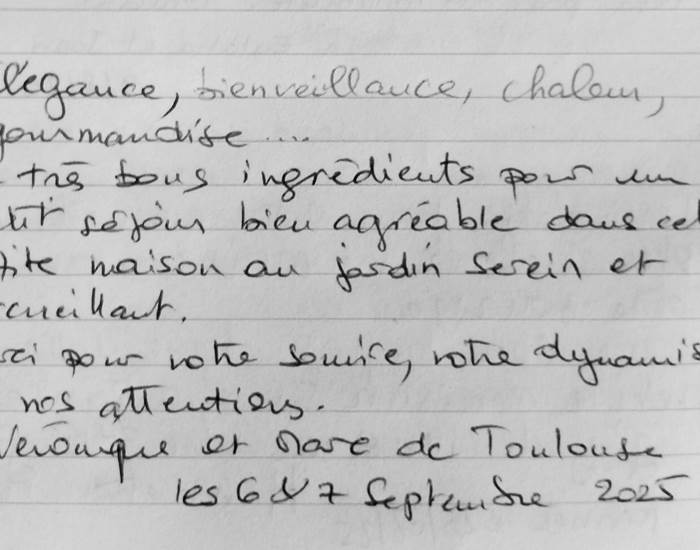 légance, bienveillance, chaleur,
gourmandise ....
très bons ingrédients pour un
tit séjour bien agréable dans cet
tite maison au jardin serein et
cueillant.
ci pour votre sourire, votre dynamis
nos attentions.
Véronique et Marc de Toulouse
les 6 & 7 Septembre 2025